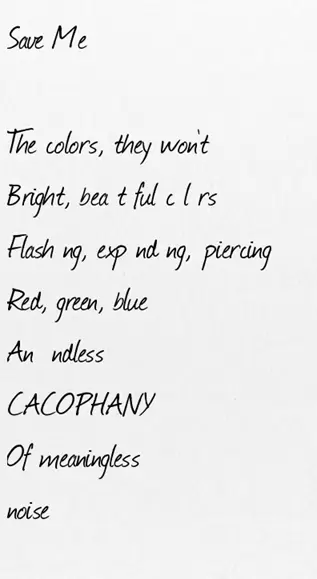 Save Me
The colors, they won't
Bright, bea t ful c l rs
Flash ng, exp nd ng, piercing
Red, green, blue
An ndless
CACOPHANY
Of meaningless
noise